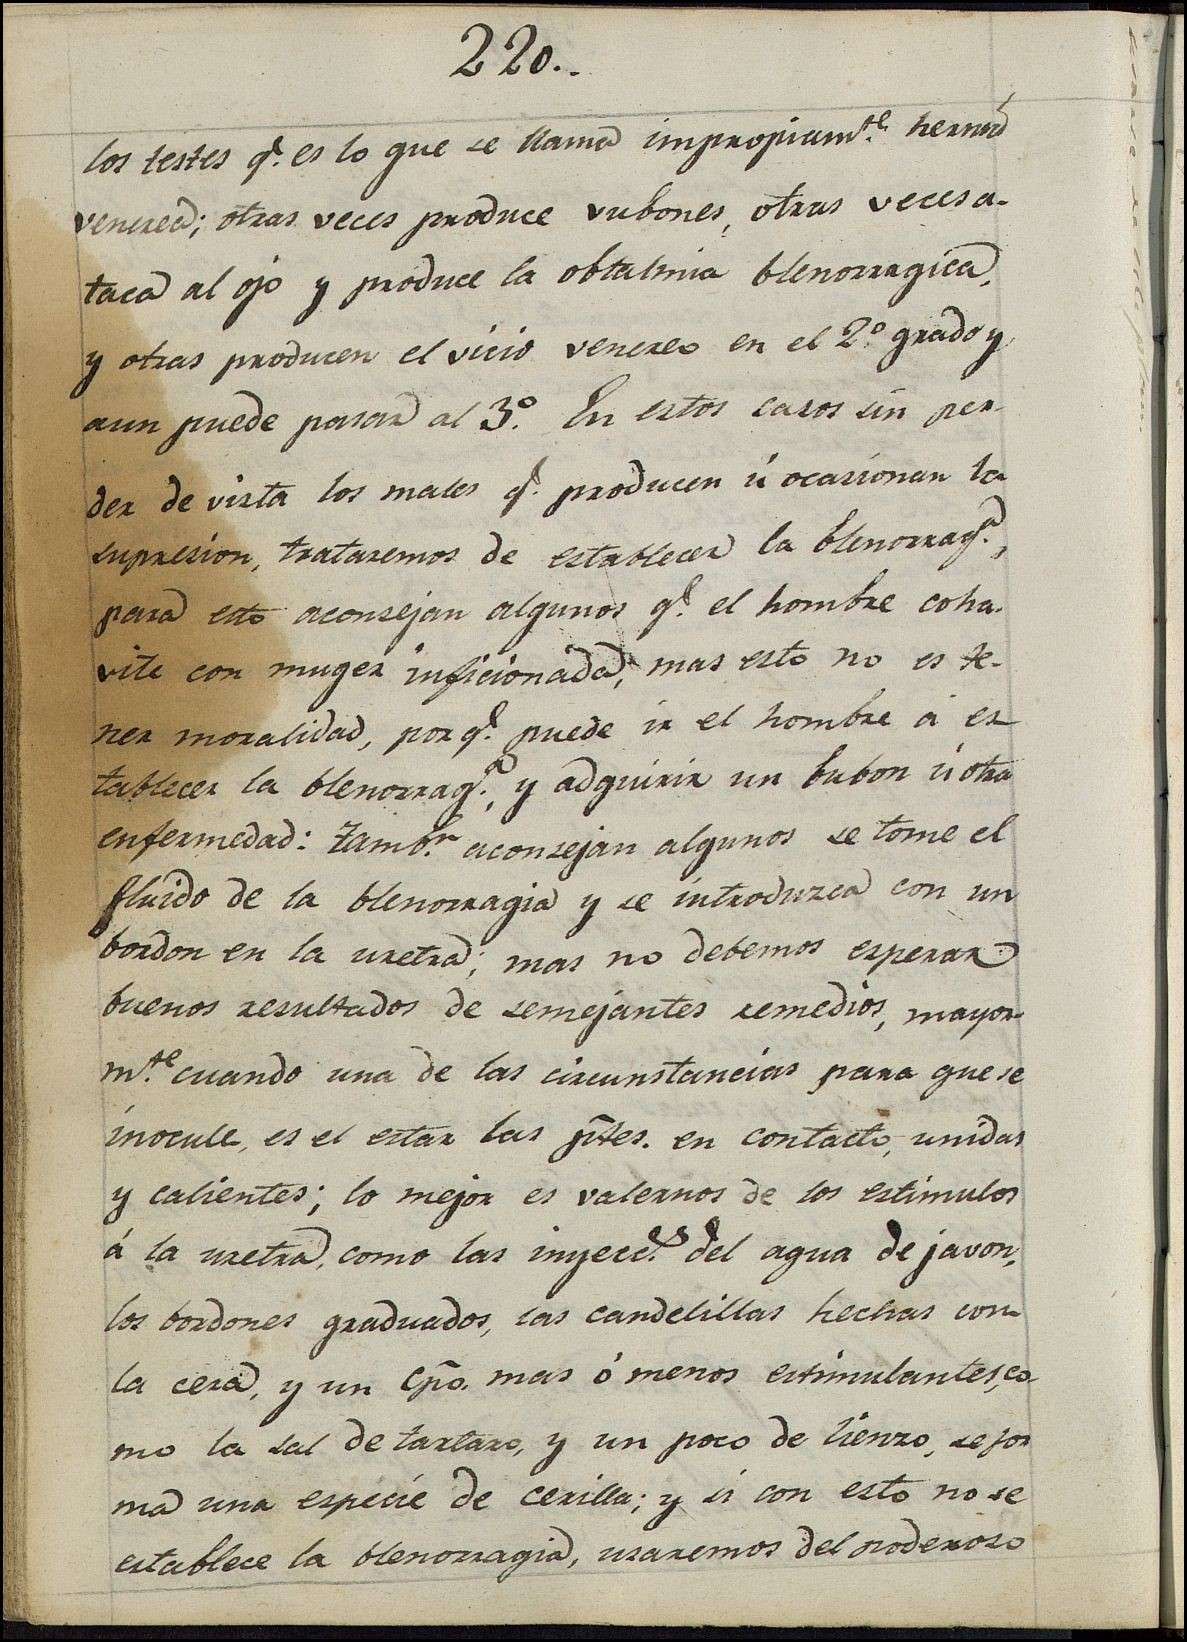 220..
los testes q.e es lo que se llama impropiam.te hernia
venerea; otras veces produce vubones, otras veces a-
taca al ojo y produce la obtalmia blenorragica,
y otras producen el vicio venereo en el 2.o grado y
aun puede pasar al 3.o En estos casos sin per-
der de vista los males q.e producen ú ocasionan la
supresion, trataremos de establecer la blenorrag.a,
para esto aconsejan algunos q.e el hombre coha-
vite con muger inficionada, mas esto no es te-
ner moralidad, por q.e puede ir el hombre á es-
tablecer la blenorrag.a, y adquirir un bubon ú otra
enfermedad: tamb.n aconsejan algunos se tome el
fluido de la blenorragia y se introduzca con un
bordon en la uretra; mas no debemos esperar
buenos resultados de semejantes remedios, mayor-
m.te cuando una de las circunstancias para que se
inocule, es el estar las p̃tes. en contacto, unidas
y calientes; lo mejor es valernos de los estimulos
á la uretra, como las inyecc.s del agua de javon,
los bordones graduados, las candelillas hechas con
la cera, y un cp̃o. mas ó menos estimulantes, co-
mo la sal de tartaro, y un poco de lienzo, se for
ma una especie de cerilla; y si con esto no se
establece la blenorragia, usaremos del poderoso